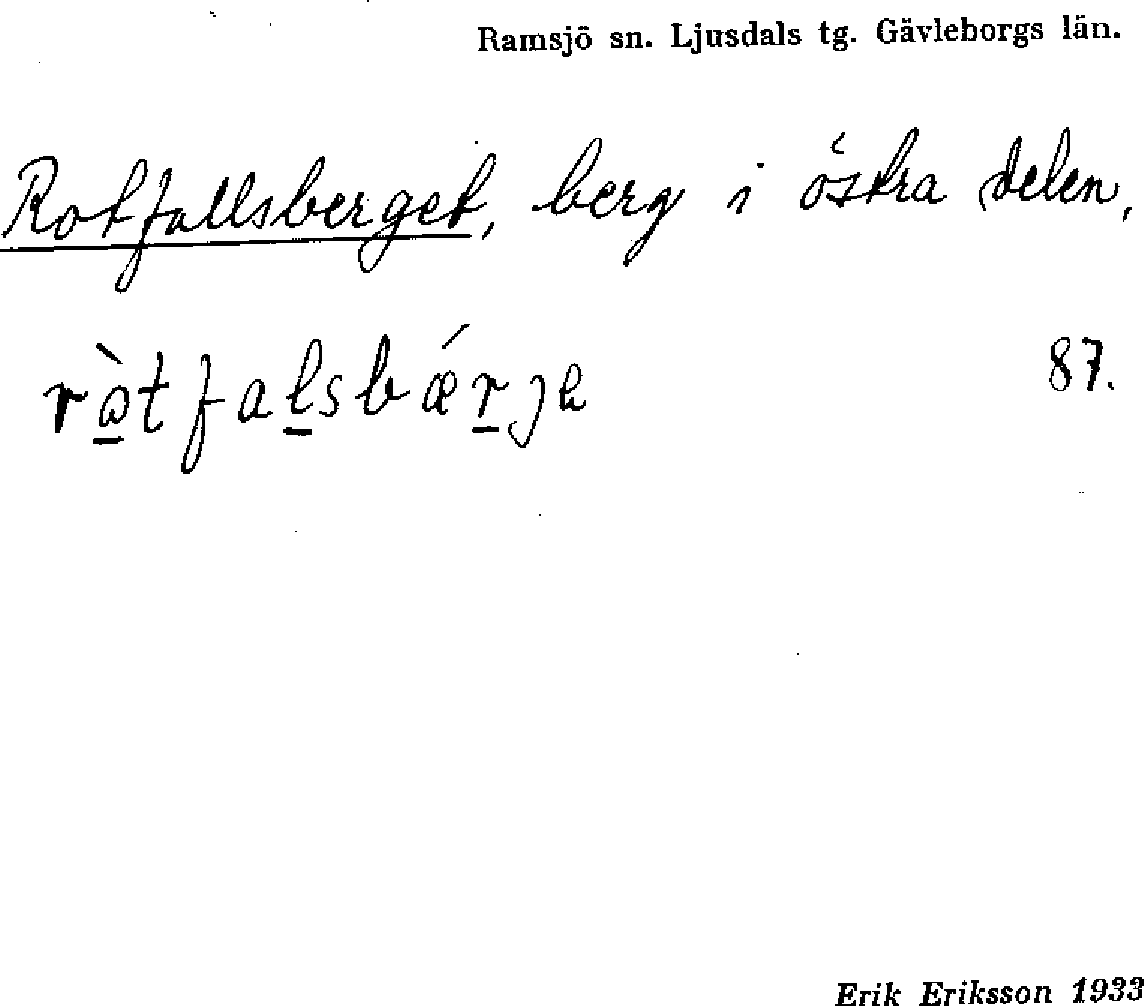 Ramsjö sn. Ljusdals tg. Gävleborgs län.
Rotfallsberget, berg i östra delen,
rὰtfalsbǽrje 87.
Erik Eriksson 1933